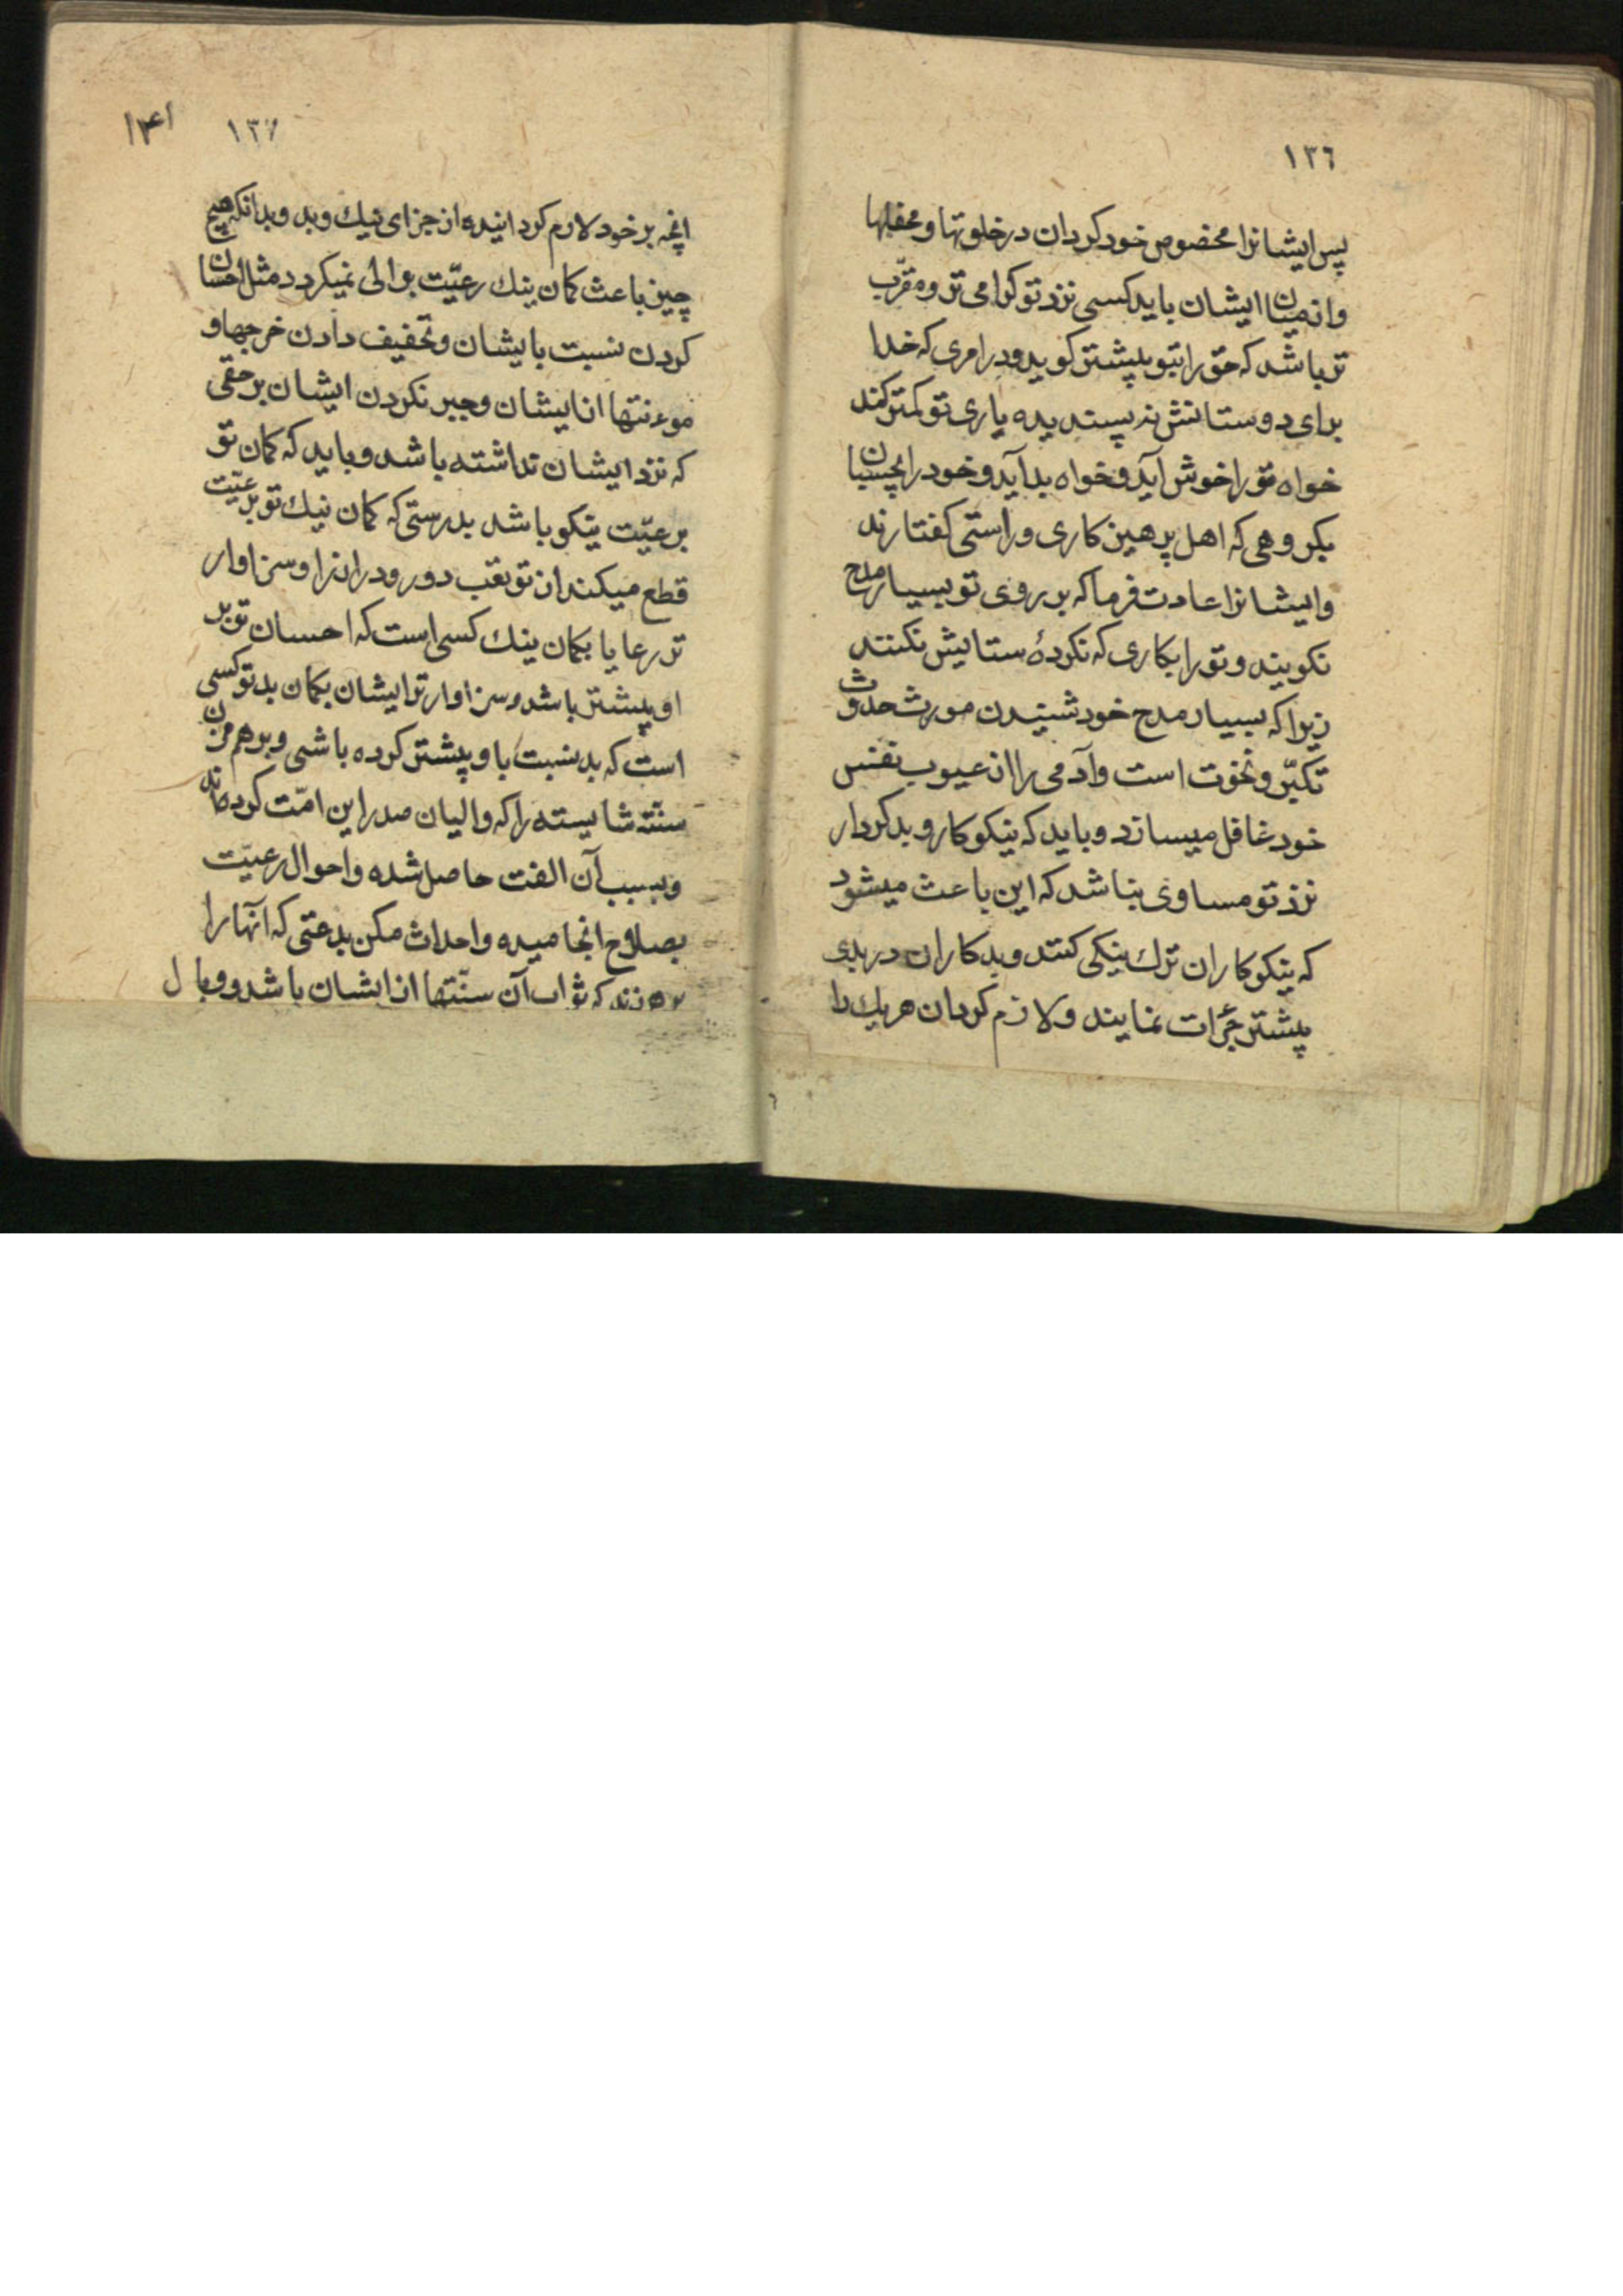 ١٣٦
پس ایشانرا مخصوص خود کردان در خلوتها و محفلها
و از میان ایشان باید کسی نزد تو کرامی تر و مقرّب
تر باشد که حق را بتو بیشتر کوید و در امری که خدا
برای دوستانش نه پسندیده یاری تو کمتر کند
خواه تو را خوش آید و خواه بد آید و خود را بچسبان
بکروهی که اهل پرهیز کاری و راستی کفتارند
و ایشانرا عادت فرما که بر روی تو بسیار مدح
نکویند و تو را بکاری که نکردهٔ ستایش نکنند
زیرا که بسیار مدح خود شنیدن مورث حدوث
تکبّر و نخوت است و آدمی را از عیوب نفس
خود غافل میسازد و باید که نیکو کار و بد کردار
نزد تو مساوی نباشد که این باعث میشود
که نیکو کاران ترك نیکی کنند و بد کاران در بدی
بیشتر جرأت نمایند و لازم کردان هر یك را
١٣٧
١٤١
انچه بر خود لازم کردانیده از جزای نیك و بد و بدانکه هیچ
چیز باعث کمان نیك رعیّت بوالی نمیکردد مثل احسان
کردن نسبت بایشان و تخفیف دادن خرجها و
موءنتها از ایشان و جبر نکردن ایشان بر حقی
که نزد ایشان نداشته باشد و باید که کمان تو
برعیّت نیکو باشد بدرستی که کمان نیك تو برعیّت
قطع میکند از تو تعب دور و دراز را و سزاوار
تر رعایا بکمان نیك کسی است که احسان تو بر
او بیشتر باشد و سزاوار تر ایشان بکمان بد تو کسی
است که بد نسبت باو بیشتر کرده باشی و برهم مزن
سنّته شایسته را که والیان صدر این امّت کرده‌اند
و بسبب آن الفت حاصل شده و احوال رعیّت
بصلاح انجامیده و احداث مکن بدعتی که آنها را
برهم زند که ثواب آن سنّتها از ایشان باشد و وبال